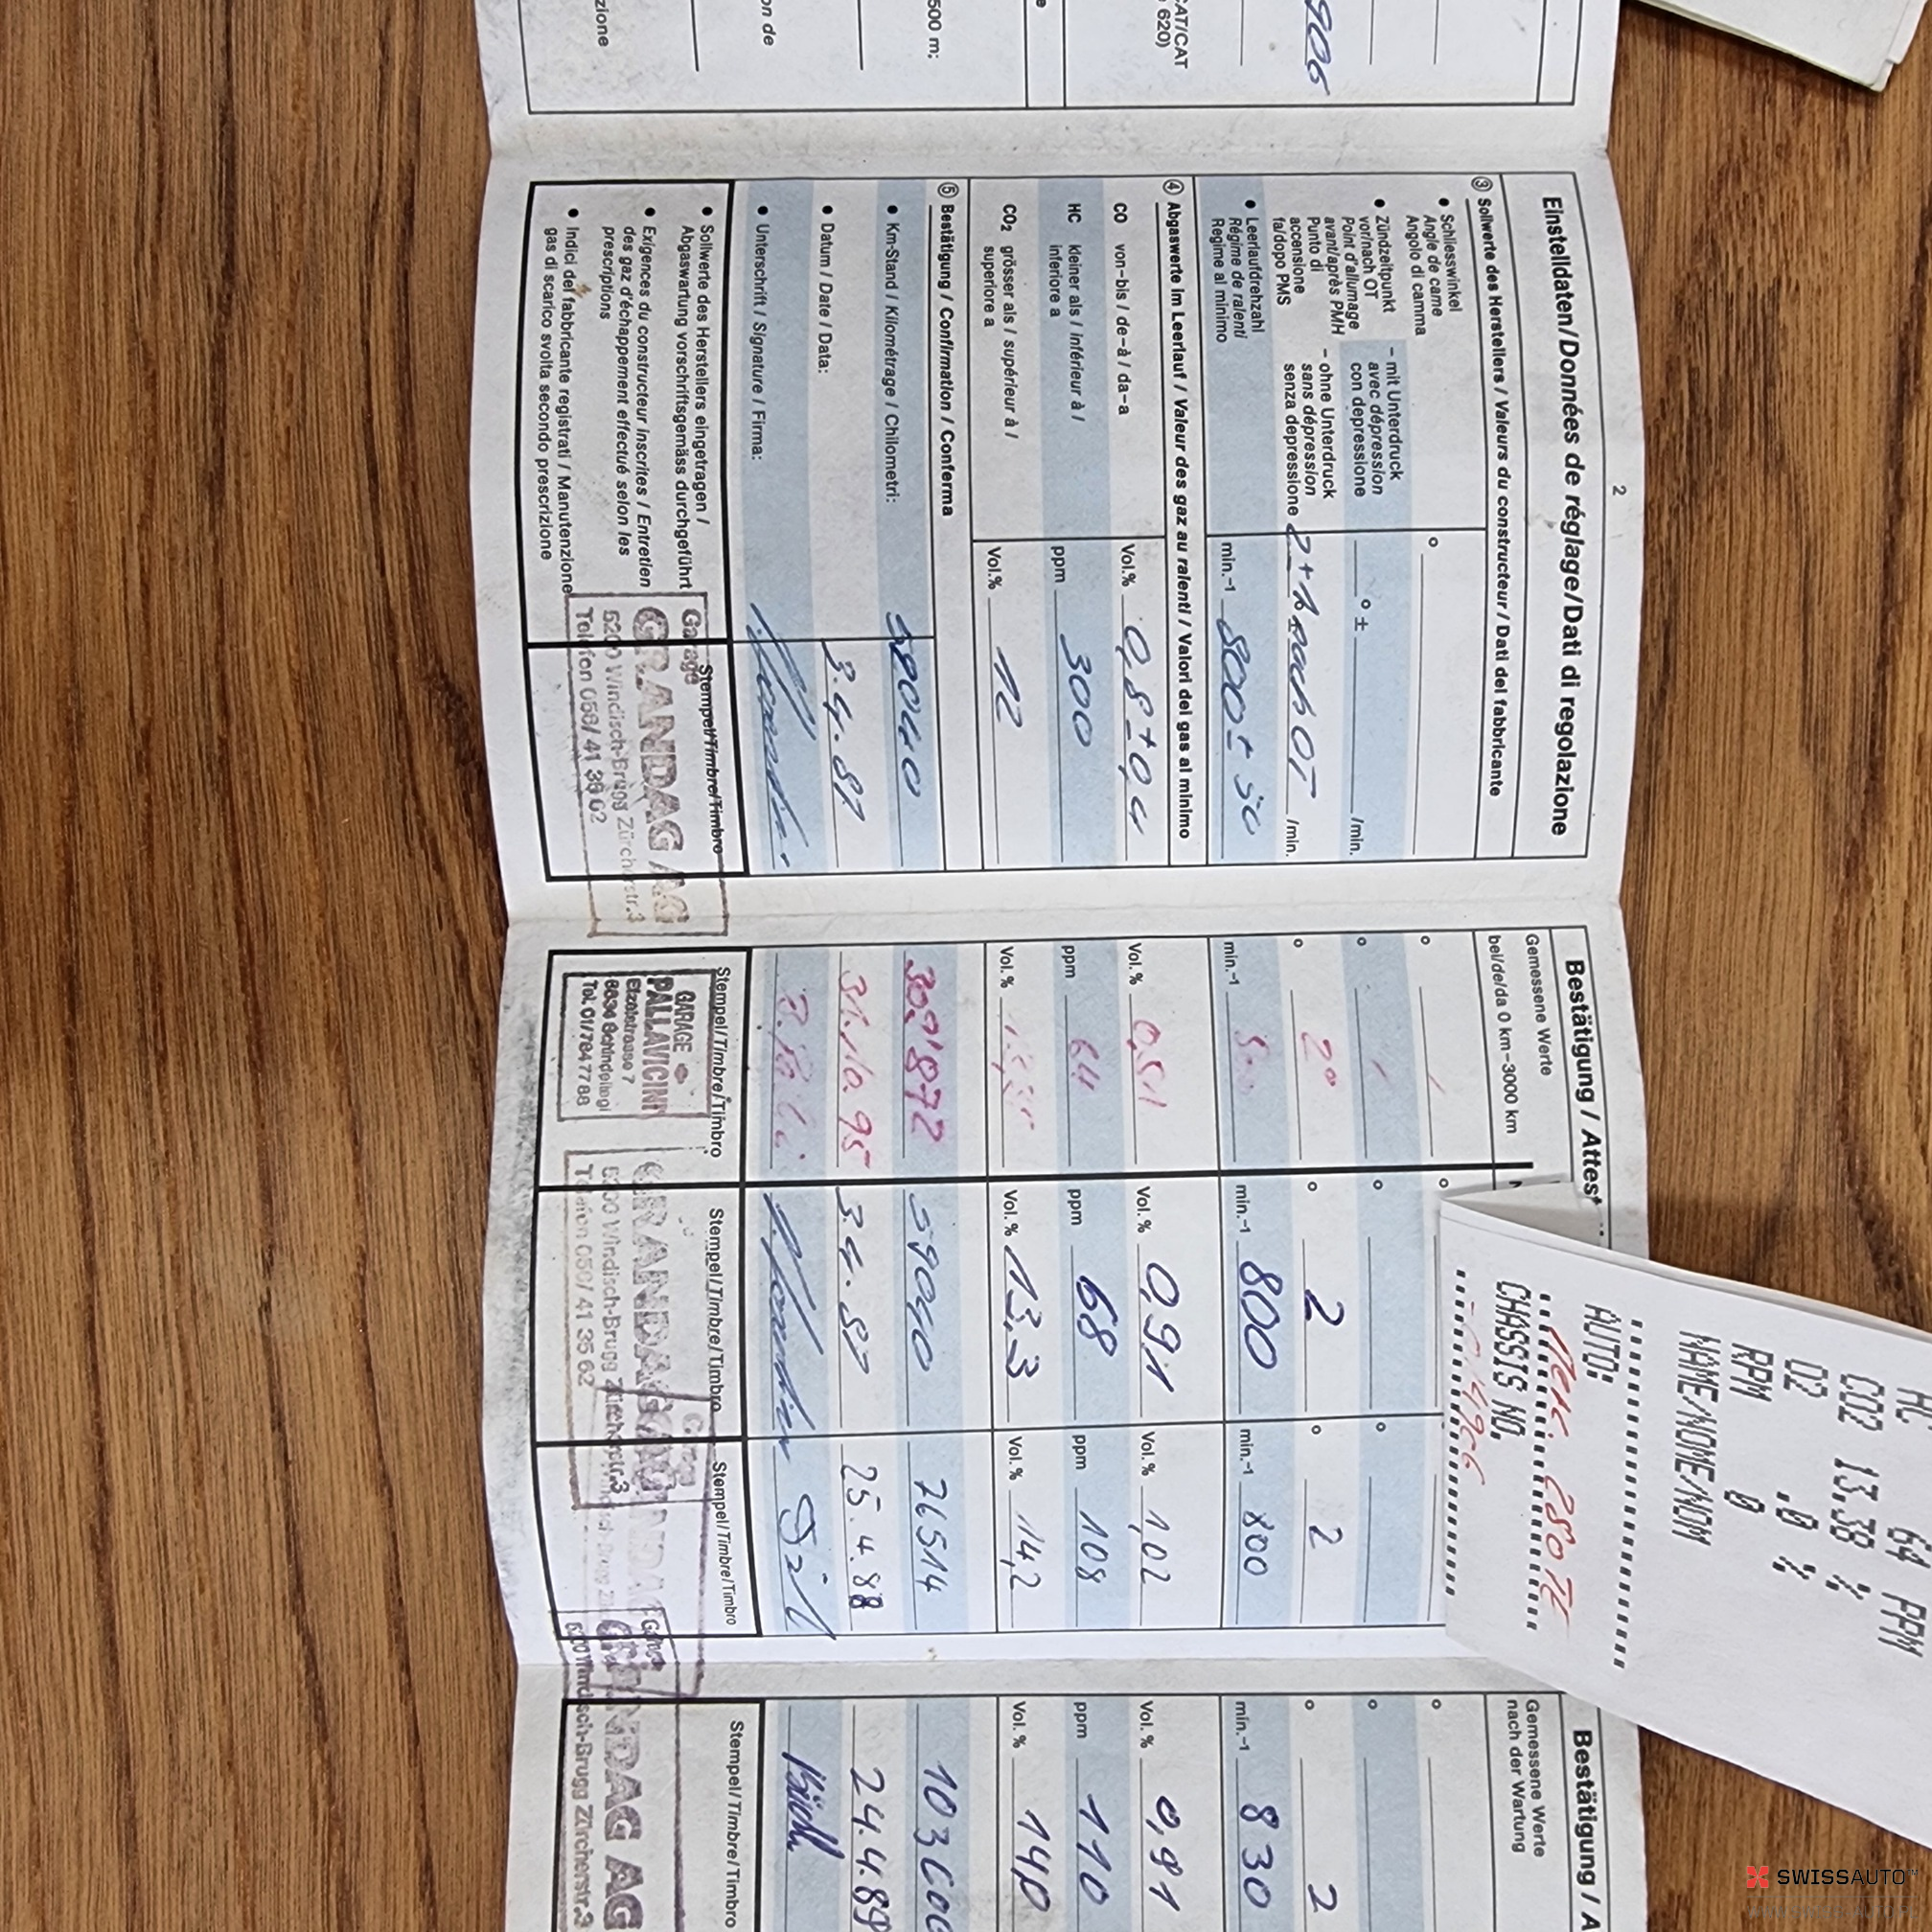 906
CAT/CAT
620)
500 m;
on de
zione
2
Einstelldaten/Données de réglage/Dati di regolazione
③ Sollwerte des Herstellers / Valeurs du constructeur / Dati del fabbricante
• Schliesswinkel
Angle de came
Angolo di camma
°
• Zündzeitpunkt
vor/nach OT
Point d'allumage
avant/après PMH
Punto di
accensione
fa/dopo PMS
– mit Unterdruck
avec dépression
con depressione
° ± /min.
– ohne Unterdruck
sans dépression
senza depressione
nach OT /min.
• Leerlaufdrehzahl
Régime de ralenti
Regime al minimo
min.-1 800 ± 50
④ Abgaswerte im Leerlauf / Valeur des gaz au ralenti / Valori dei gas al minimo
CO von–bis / de–à / da–a
Vol.% 0,8 ± 0,4
HC kleiner als / inférieur à /
inferiore a
ppm 300
CO2 grösser als / supérieur à /
superiore a
Vol.% 12
⑤ Bestätigung / Confirmation / Conferma
• Km-Stand / Kilométrage / Chilometri: 59040
• Datum / Date / Data: 3.4.87
• Unterschrift / Signature / Firma:
• Sollwerte des Herstellers eingetragen /
Abgaswartung vorschriftsgemäss durchgeführt
• Exigences du constructeur inscrites / Entretien
des gaz d'échappement effectué selon les
prescriptions
• Indici del fabbricante registrati / Manutenzione
gas di scarico svolta secondo prescrizione
Stempel/Timbre/Timbro
Garage
GRANDAG AG
5200 Windisch-Brugg Zürcherstr.3
Telefon 056/41 35 62
Bestätigung / Attest
Gemessene Werte
bei/de/da 0 km–3000 km
°
°
° 2°
min.-1
Vol.% 0,51
ppm 64
Vol.%
309'872
31.10.95
Stempel/Timbre/Timbro
GARAGE
PALLAVICINI
Etzelstrasse 7
8834 Schindellegi
Tel. 01/784 77 88
°
°
° 2
min.-1 800
Vol.% 0,91
ppm 68
Vol.% 13,3
59040
3.4.87
Stempel/Timbre/Timbro
GRANDAG AG
5200 Windisch-Brugg Zürcherstr.3
Telefon 056/41 35 62
°
° 2
min.-1 800
Vol.% 1,02
ppm 108
Vol.% 14,2
76514
25.4.88
Stempel/Timbre/Timbro
Garage
GRANDAG AG
5200 Windisch-Brugg Zürcherstr.3
Bestätigung / A
Gemessene Werte
nach der Wartung
°
°
° 2
min.-1 830
Vol.% 0,91
ppm 110
Vol.% 14,0
24.4.89
Stempel/Timbre/Timbro
HC 64 PPM
CO2 13.38 %
O2 .0 %
RPM 0
NAME/NOME/NOM
AUTO:
Merc. 280 TE
CHASSIS NO.
SWISSAUTO